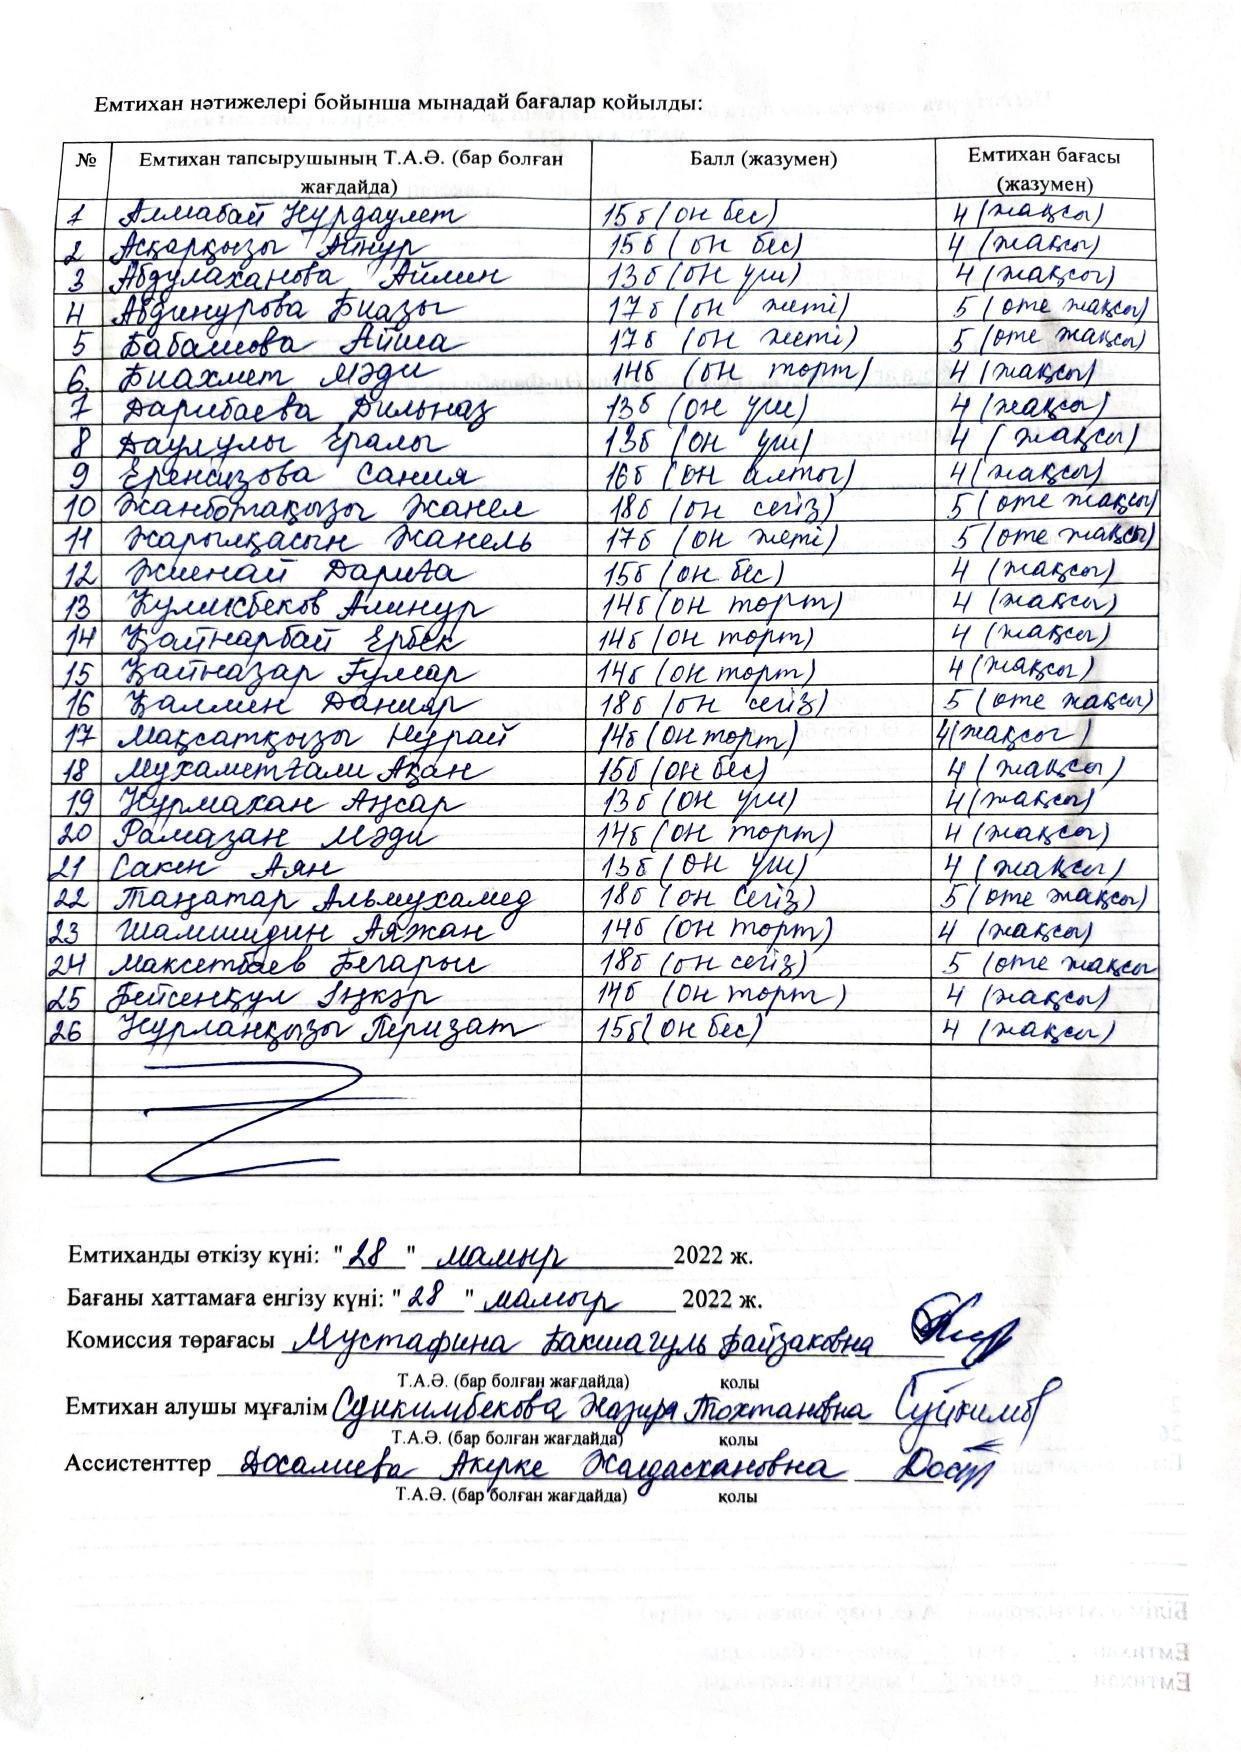 Емтихан нәтижелері бойынша мынадай бағалар қойылды:
№ Емтихан тапсырушының Т.А.Ә. (бар болған жағдайда) Балл (жазумен) Емтихан бағасы (жазумен)
1 Алмабай Нұрдаулет 15б (он бес) 4 (жақсы)
2 Асқарқызы Айнур 15б (он бес) 4 (жақсы)
3 Абдулаханова Аймин 13б (он үш) 4 (жақсы)
4 Абдинурова Биазы 17б (он жеті) 5 (өте жақсы)
5 Бабашова Айша 17б (он жеті) 5 (өте жақсы)
6 Биахмет Мәди 14б (он төрт) 4 (жақсы)
7 Дарибаева Дильназ 13б (он үш) 4 (жақсы)
8 Даулулы Ералы 13б (он үш) 4 (жақсы)
9 Еренсизова Сания 16б (он алты) 4 (жақсы)
10 Жанботақызы Жанел 18б (он сегіз) 5 (өте жақсы)
11 Жарылқасын Жанель 17б (он жеті) 5 (өте жақсы)
12 Жиенай Дариға 15б (он бес) 4 (жақсы)
13 Куликбеков Алинур 14б (он төрт) 4 (жақсы)
14 Қайнарбай Ербек 14б (он төрт) 4 (жақсы)
15 Қайназар Ғумар 14б (он төрт) 4 (жақсы)
16 Қаллен Данияр 18б (он сегіз) 5 (өте жақсы)
17 Мақсатқызы Нұрай 14б (он төрт) 4 (жақсы)
18 Мухаметғали Ақан 15б (он бес) 4 (жақсы)
19 Нурмахан Аңсар 13б (он үш) 4 (жақсы)
20 Рамазан Мәди 14б (он төрт) 4 (жақсы)
21 Сакен Аян 13б (он үш) 4 (жақсы)
22 Таңатар Альмухамед 18б (он сегіз) 5 (өте жақсы)
23 Шамшидин Аяжан 14б (он төрт) 4 (жақсы)
24 Максетбаев Бегарыс 18б (он сегіз) 5 (өте жақсы
25 Бейсенқұл Іңкәр 14б (он төрт) 4 (жақсы)
26 Нұрланқызы Перизат 15б (он бес) 4 (жақсы)
Емтиханды өткізу күні: "28" мамыр 2022 ж.
Бағаны хаттамаға енгізу күні: "28" мамыр 2022 ж.
Комиссия төрағасы Мустафина Бакшагуль Байзаковна
Т.А.Ә. (бар болған жағдайда) қолы
Емтихан алушы мұғалім Суикимбекова Назира Тохтановна
Т.А.Ә. (бар болған жағдайда) қолы
Ассистенттер Досалиева Акерке Жагдасхановна
Т.А.Ә. (бар болған жағдайда) қолы